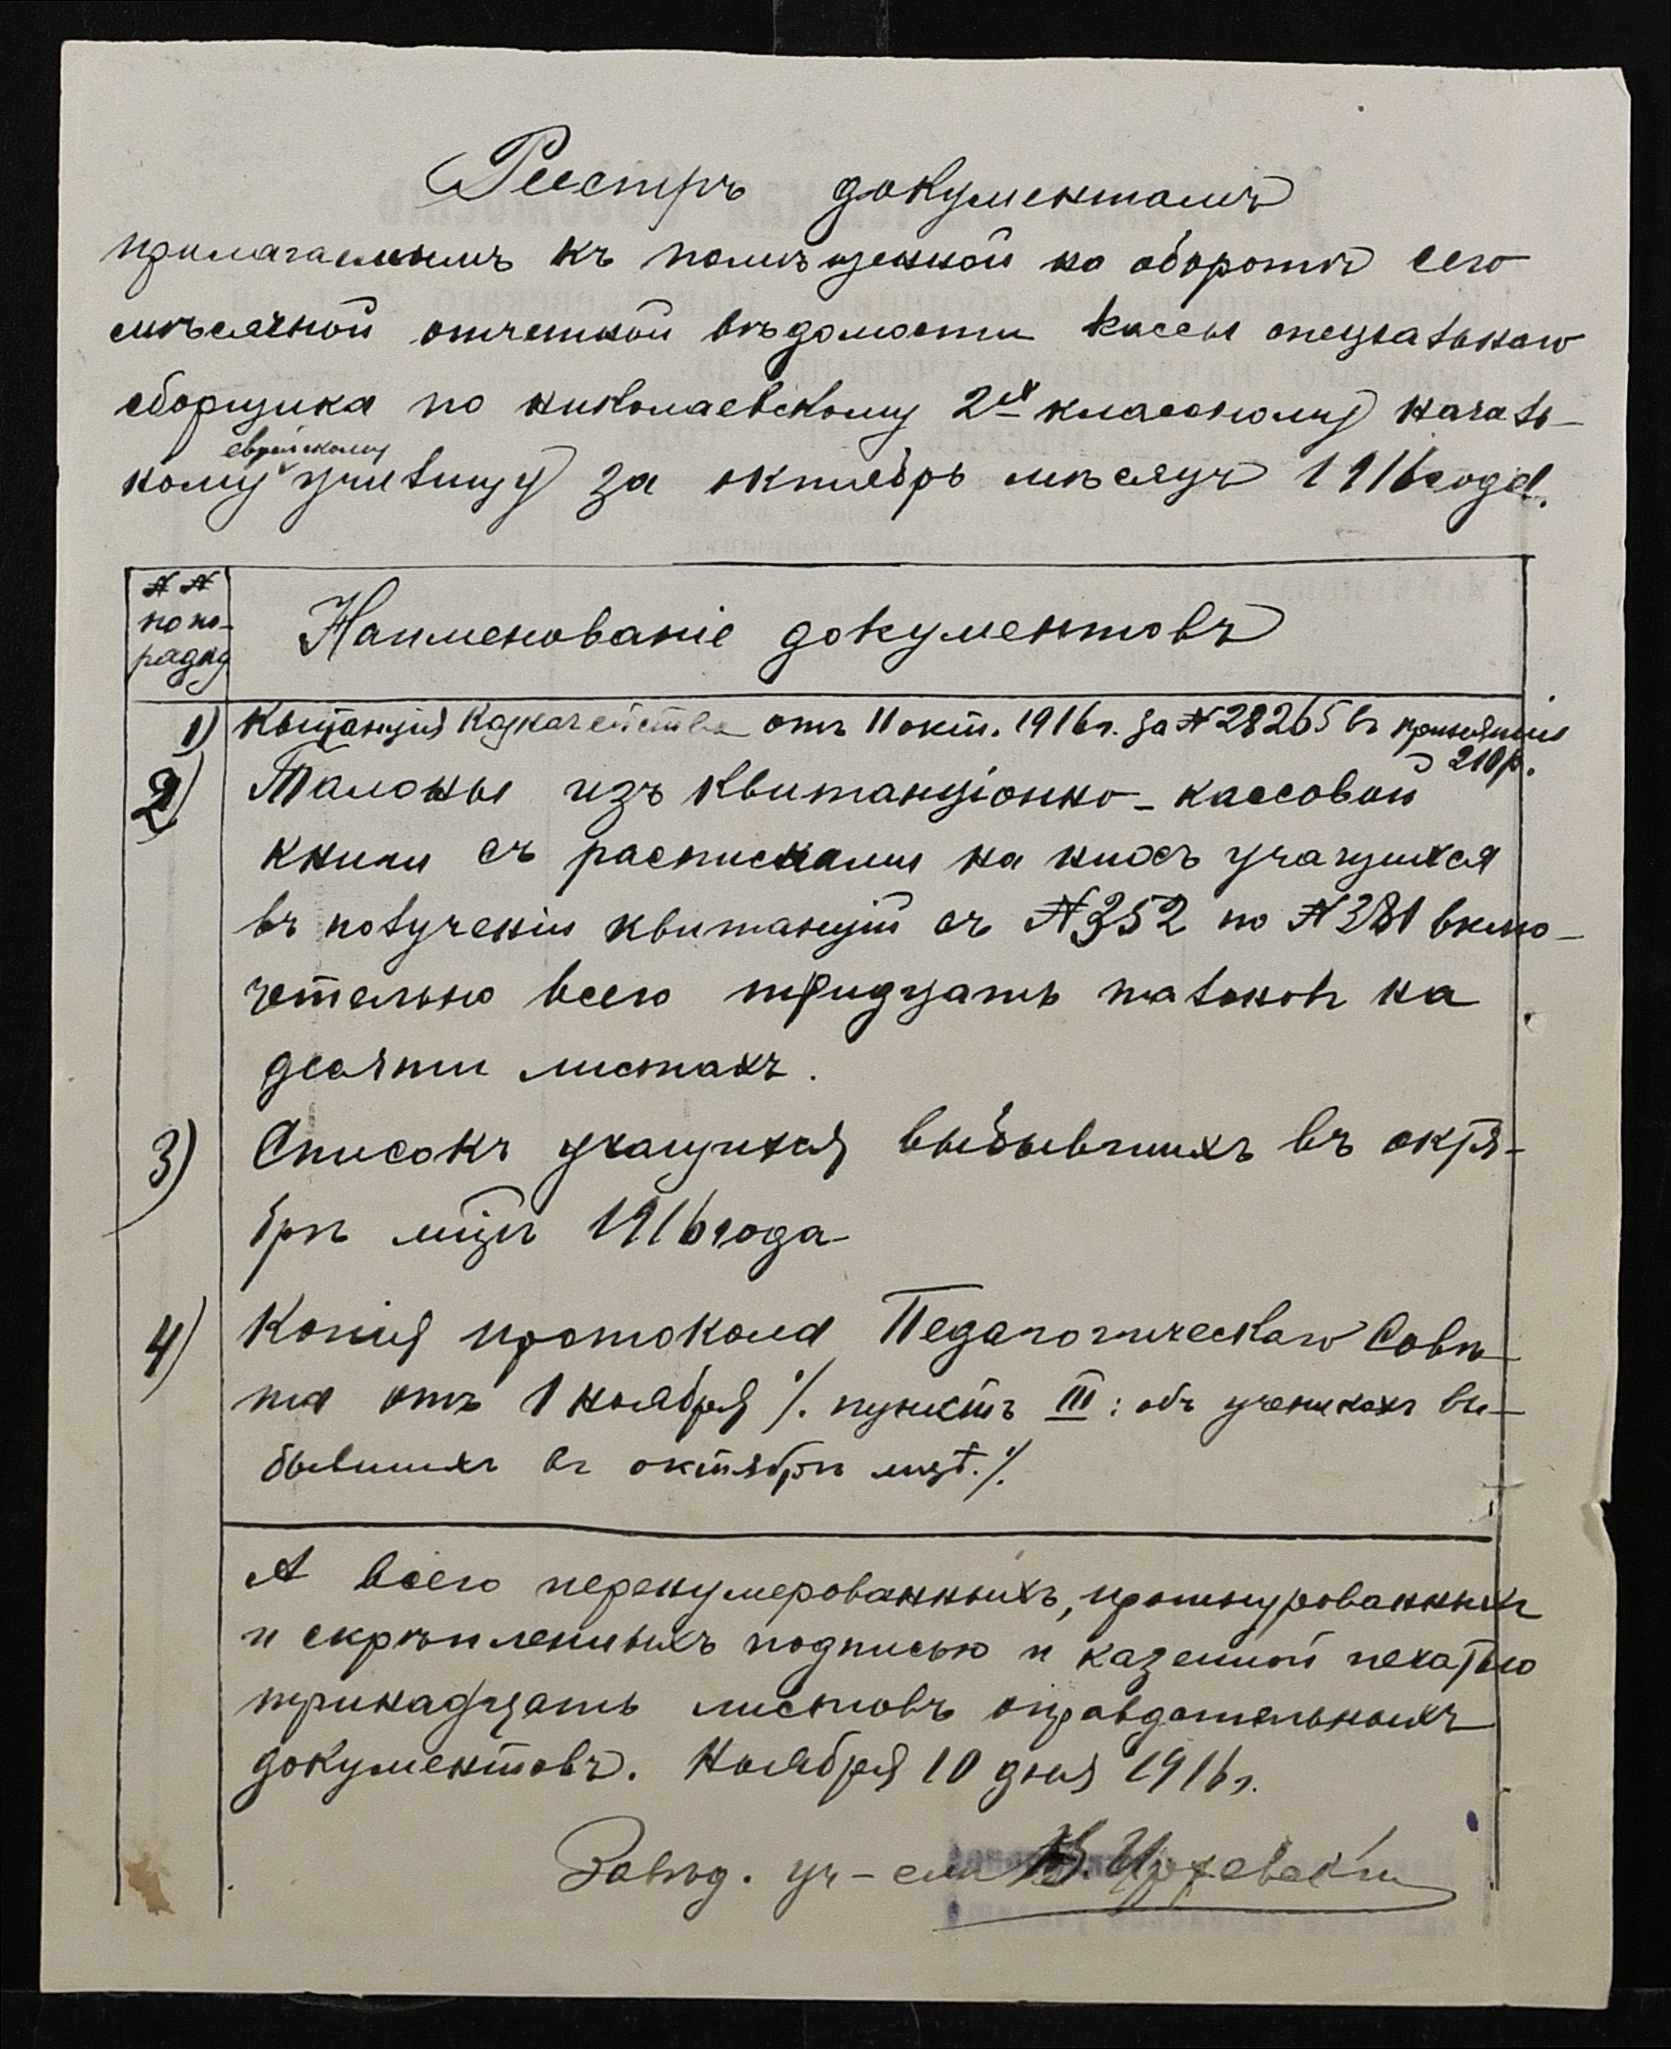 Реестръ документамъ
прилагаемымъ къ помѣщенной на оборотѣ сего
мѣсячной отчетной вѣдомости кассы спеціальнаго
сборщика по николаевскому 2х классному началь-
еврейскому
ному училищу за октябрь мѣсяцъ 1916 года.
№№
по по-
рядку
Наименованіе документовъ
1) Квитанція Казначейства отъ 11 окт. 1916 г. за №28265 въ принятіи
210 р.
2) Талоны изъ квитанціонно-кассовой
книги съ расписками на нихъ учащихся
въ полученіи квитанцій съ №352 по №381 вклю-
чительно всего тридцать талоновъ на
десяти листахъ.
3) Списокъ учащихся выбывшихъ въ октя-
брѣ мцѣ 1916 года
4) Копія протокола Педагогическаго Совѣ-
та отъ 1 ноября /. пунктъ III: объ ученикахъ вы-
бывшихъ въ октябрѣ мцѣ. /.
А всего перенумерованныхъ, прошнурованныхъ
и скрѣпленныхъ подписью и казенной печатью
тринадцать листовъ оправдательныхъ
документовъ. Ноября 10 дня 1916 г.
Завѣд. уч-емъ